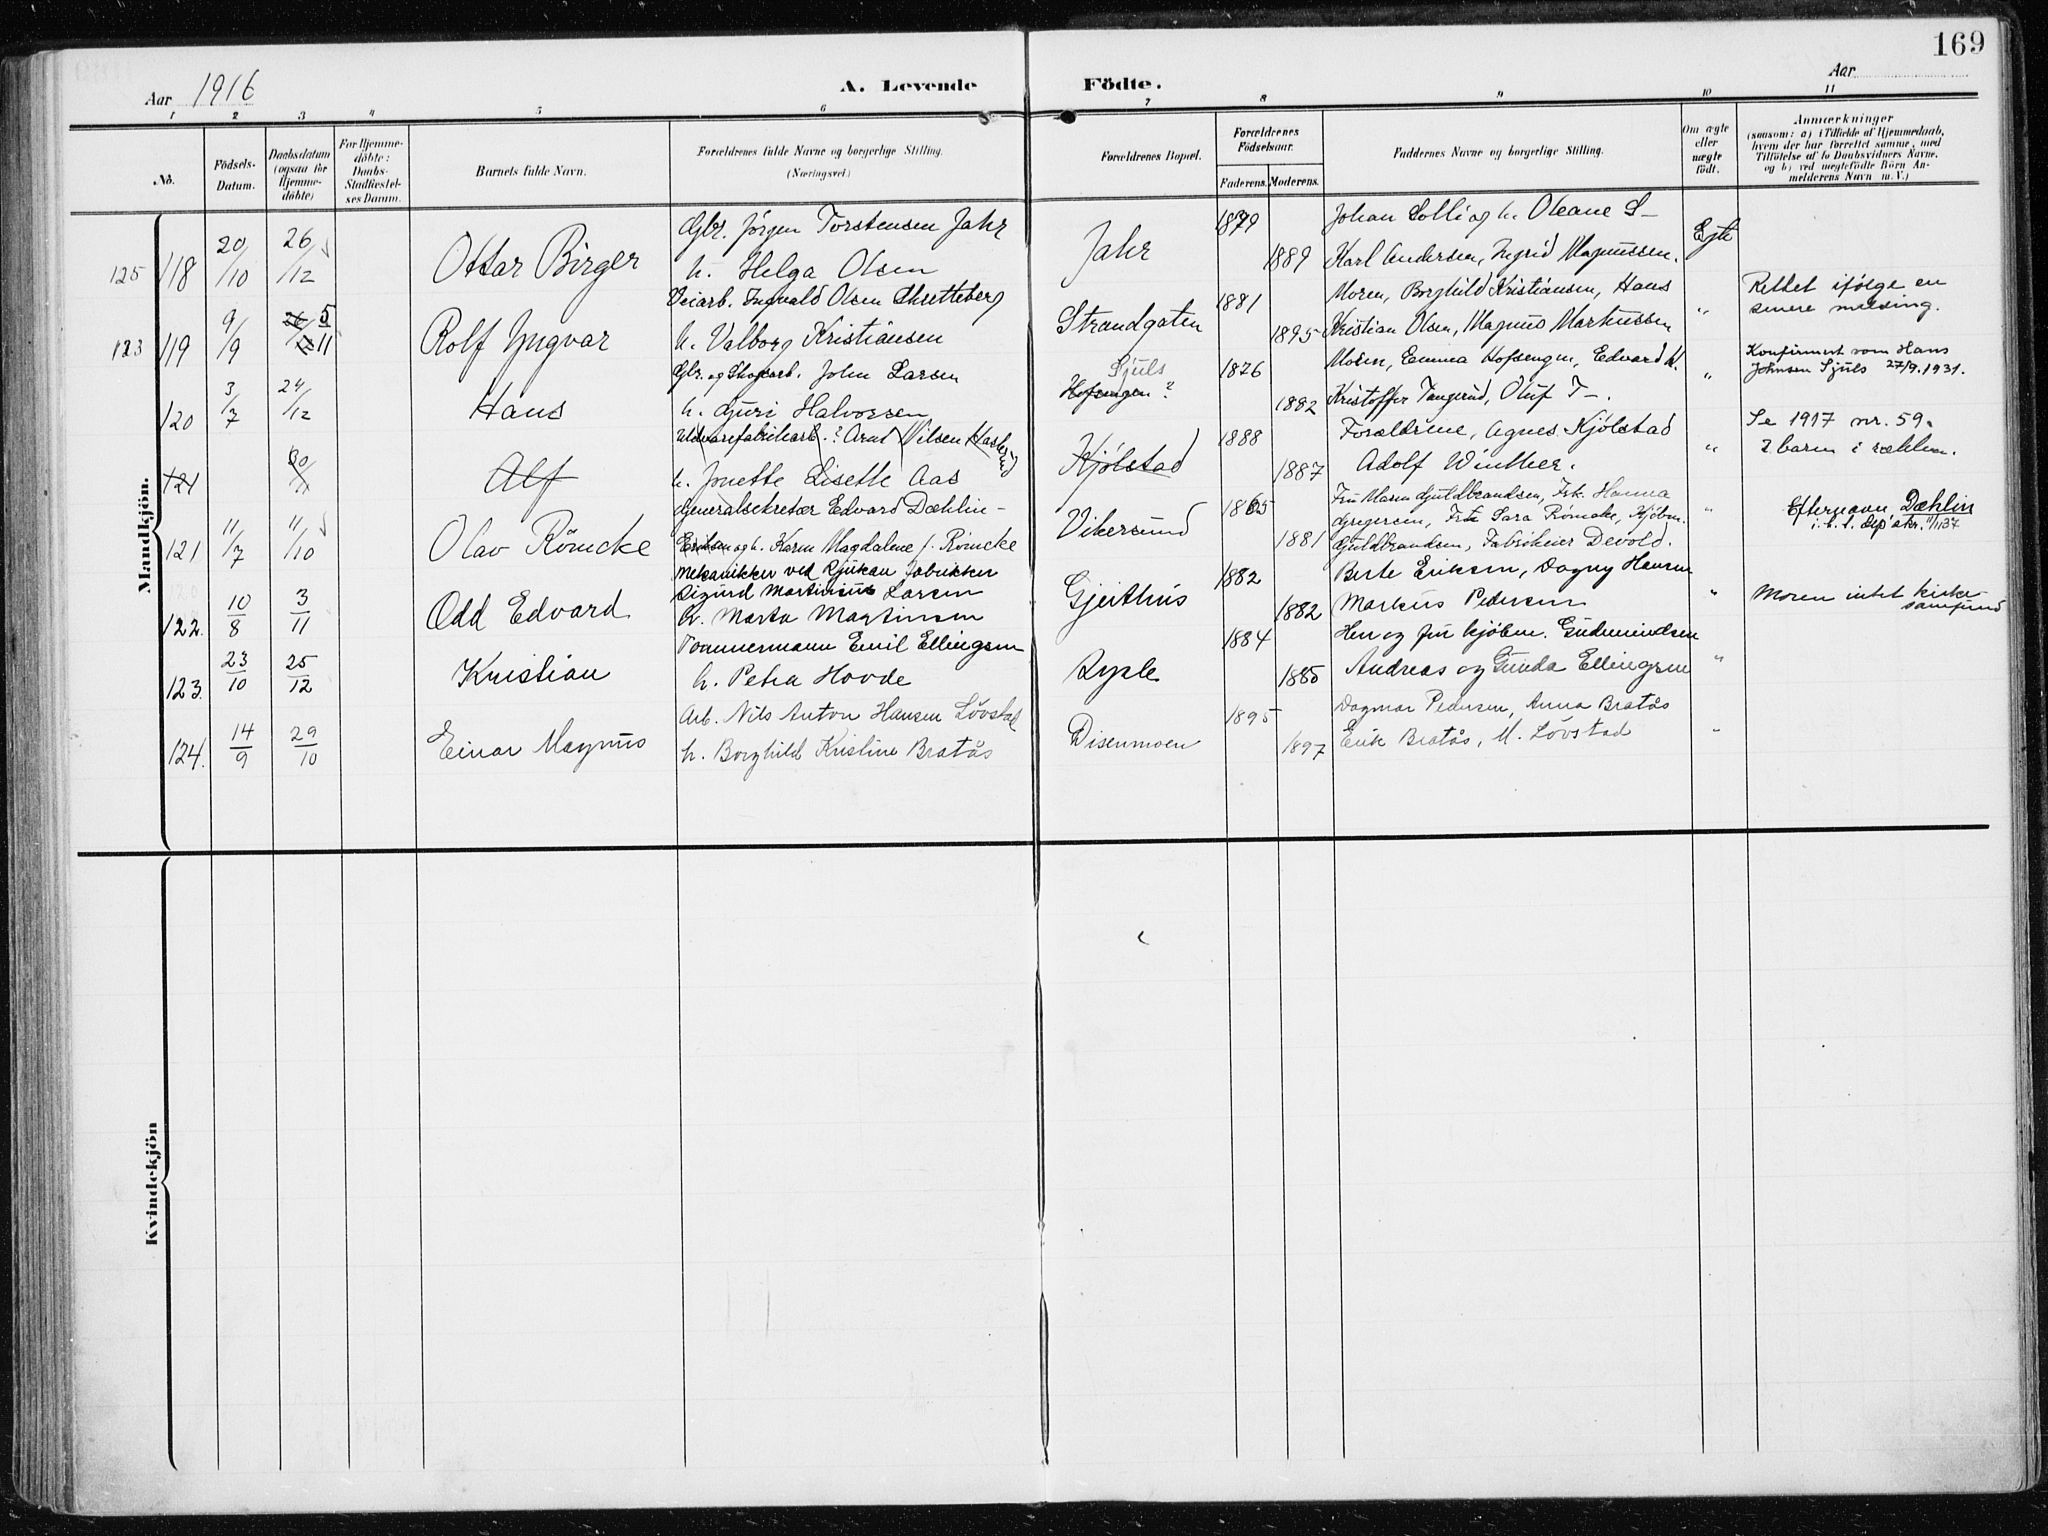 169
Aar 1916
A. Levende Födte.
Aar
1 2 3 4 5 6 7 8 9 10 11
No.
Födsels-Datum.
Daabsdatum (ogsaa for Hjemme-döbte)
For Hjemme-döbte: Daabs-Stadfæstel-ses Datum.
Barnets fulde Navn.
Forældrenes fulde Navne og borgerlige Stilling. (Næringsvei.)
Forældrenes Bopæl.
Forældrenes Födselsaar.
Faderens. Moderens.
Faddernes Navne og borgerlige Stilling.
Om ægte eller uægte födt.
Anmærkninger
(saasom: a) i Tilfælde af Hjemmedaab,
hvem der har forrettet samme, med
Tilföielse af to Daabsvidners Navne,
og b) ved uægtefödte Börn An-
melderens Navn m. V.)
Mandkjön.
125 118 20/10 26/12 Ottar Birger
Gbr. Jörgen Torstensen Jahr
h. Helga Olsen
Jahr 1879 1889
Johan Solli og h. Oleane S-
Karl Andersen, Ingrid Magnussen.
Egte
123 119 9/9 26/12 5/11 Rolf Yngvar
Veiarb. Ingvald Olsen Skretteberg
h. Valborg Kristiansen
Strandgaten 1881 1895
Moren, Borghild Kristiansen, Hans
Kristian Olsen, Magnus Markussen
"
Rettet ifölge en
senere melding.
120 3/7 24/12 Hans
Gbr. og Skogsarb. John Larsen
h. Guri Halvorsen
Sjuls
Hofsengen ? 1876 1882
Moren, Emma Hofsengen, Edvard H.
Kristoffer Tangerud, Oluf T-.
"
Konfirmert som Hans
Johnsen Sjuls 27/9.1931.
121 30/11 Alf
Uldvarefabrikarb. ? Arnt Nilsen
h. Jonette Lisette Aas
Kjölstad 1888 1887
Forældrene, Agnes Kjölstad
Adolf Winther.
"
Se 1917 nr. 59.
2 barn i rækken.
121 11/7 11/10 Olav Römcke
Generalsekretær Edvard Dæhlin-
Eriksen og h. Karen Magdalene f. Römcke
Vikersund 1865 1881
Fru Maren Guldbrandsen, Frk. Hanna
Gregersen, Frk Sara Römcke, Kjöbm.
Guldbrandsen, Fabrikeier Devold.
"
Efternavn Dæhlin
122. 10/8 3/11 Odd Edvard
Mekanikker ved Rjukan fabrikker
Sigurd Martinius Larsen
h. Marta Martinsen
Gjeithus 1882 1882
Berte Eriksen, Dagny Hansen
Markus Pedersen
"
Moren intet kirke-
samfund
123. 23/10 25/12 Kristian
Tömmermann Emil Ellingsen
h. Petra Hovde
Ryple 1884 1885
Herr og fru kjöbm. Gudmundsen
Andreas og Gunda Ellingsen
"
124. 14/9 29/10 Einar Magnus
Arb. Nils Anton Hansen Lövstad
h. Borghild Kristine Bratås
Disenmoen 1895 1897
Dagmar Pedersen, Anna Bratås
Erik Bratås, M. Lövstad
"
Kvindekjön